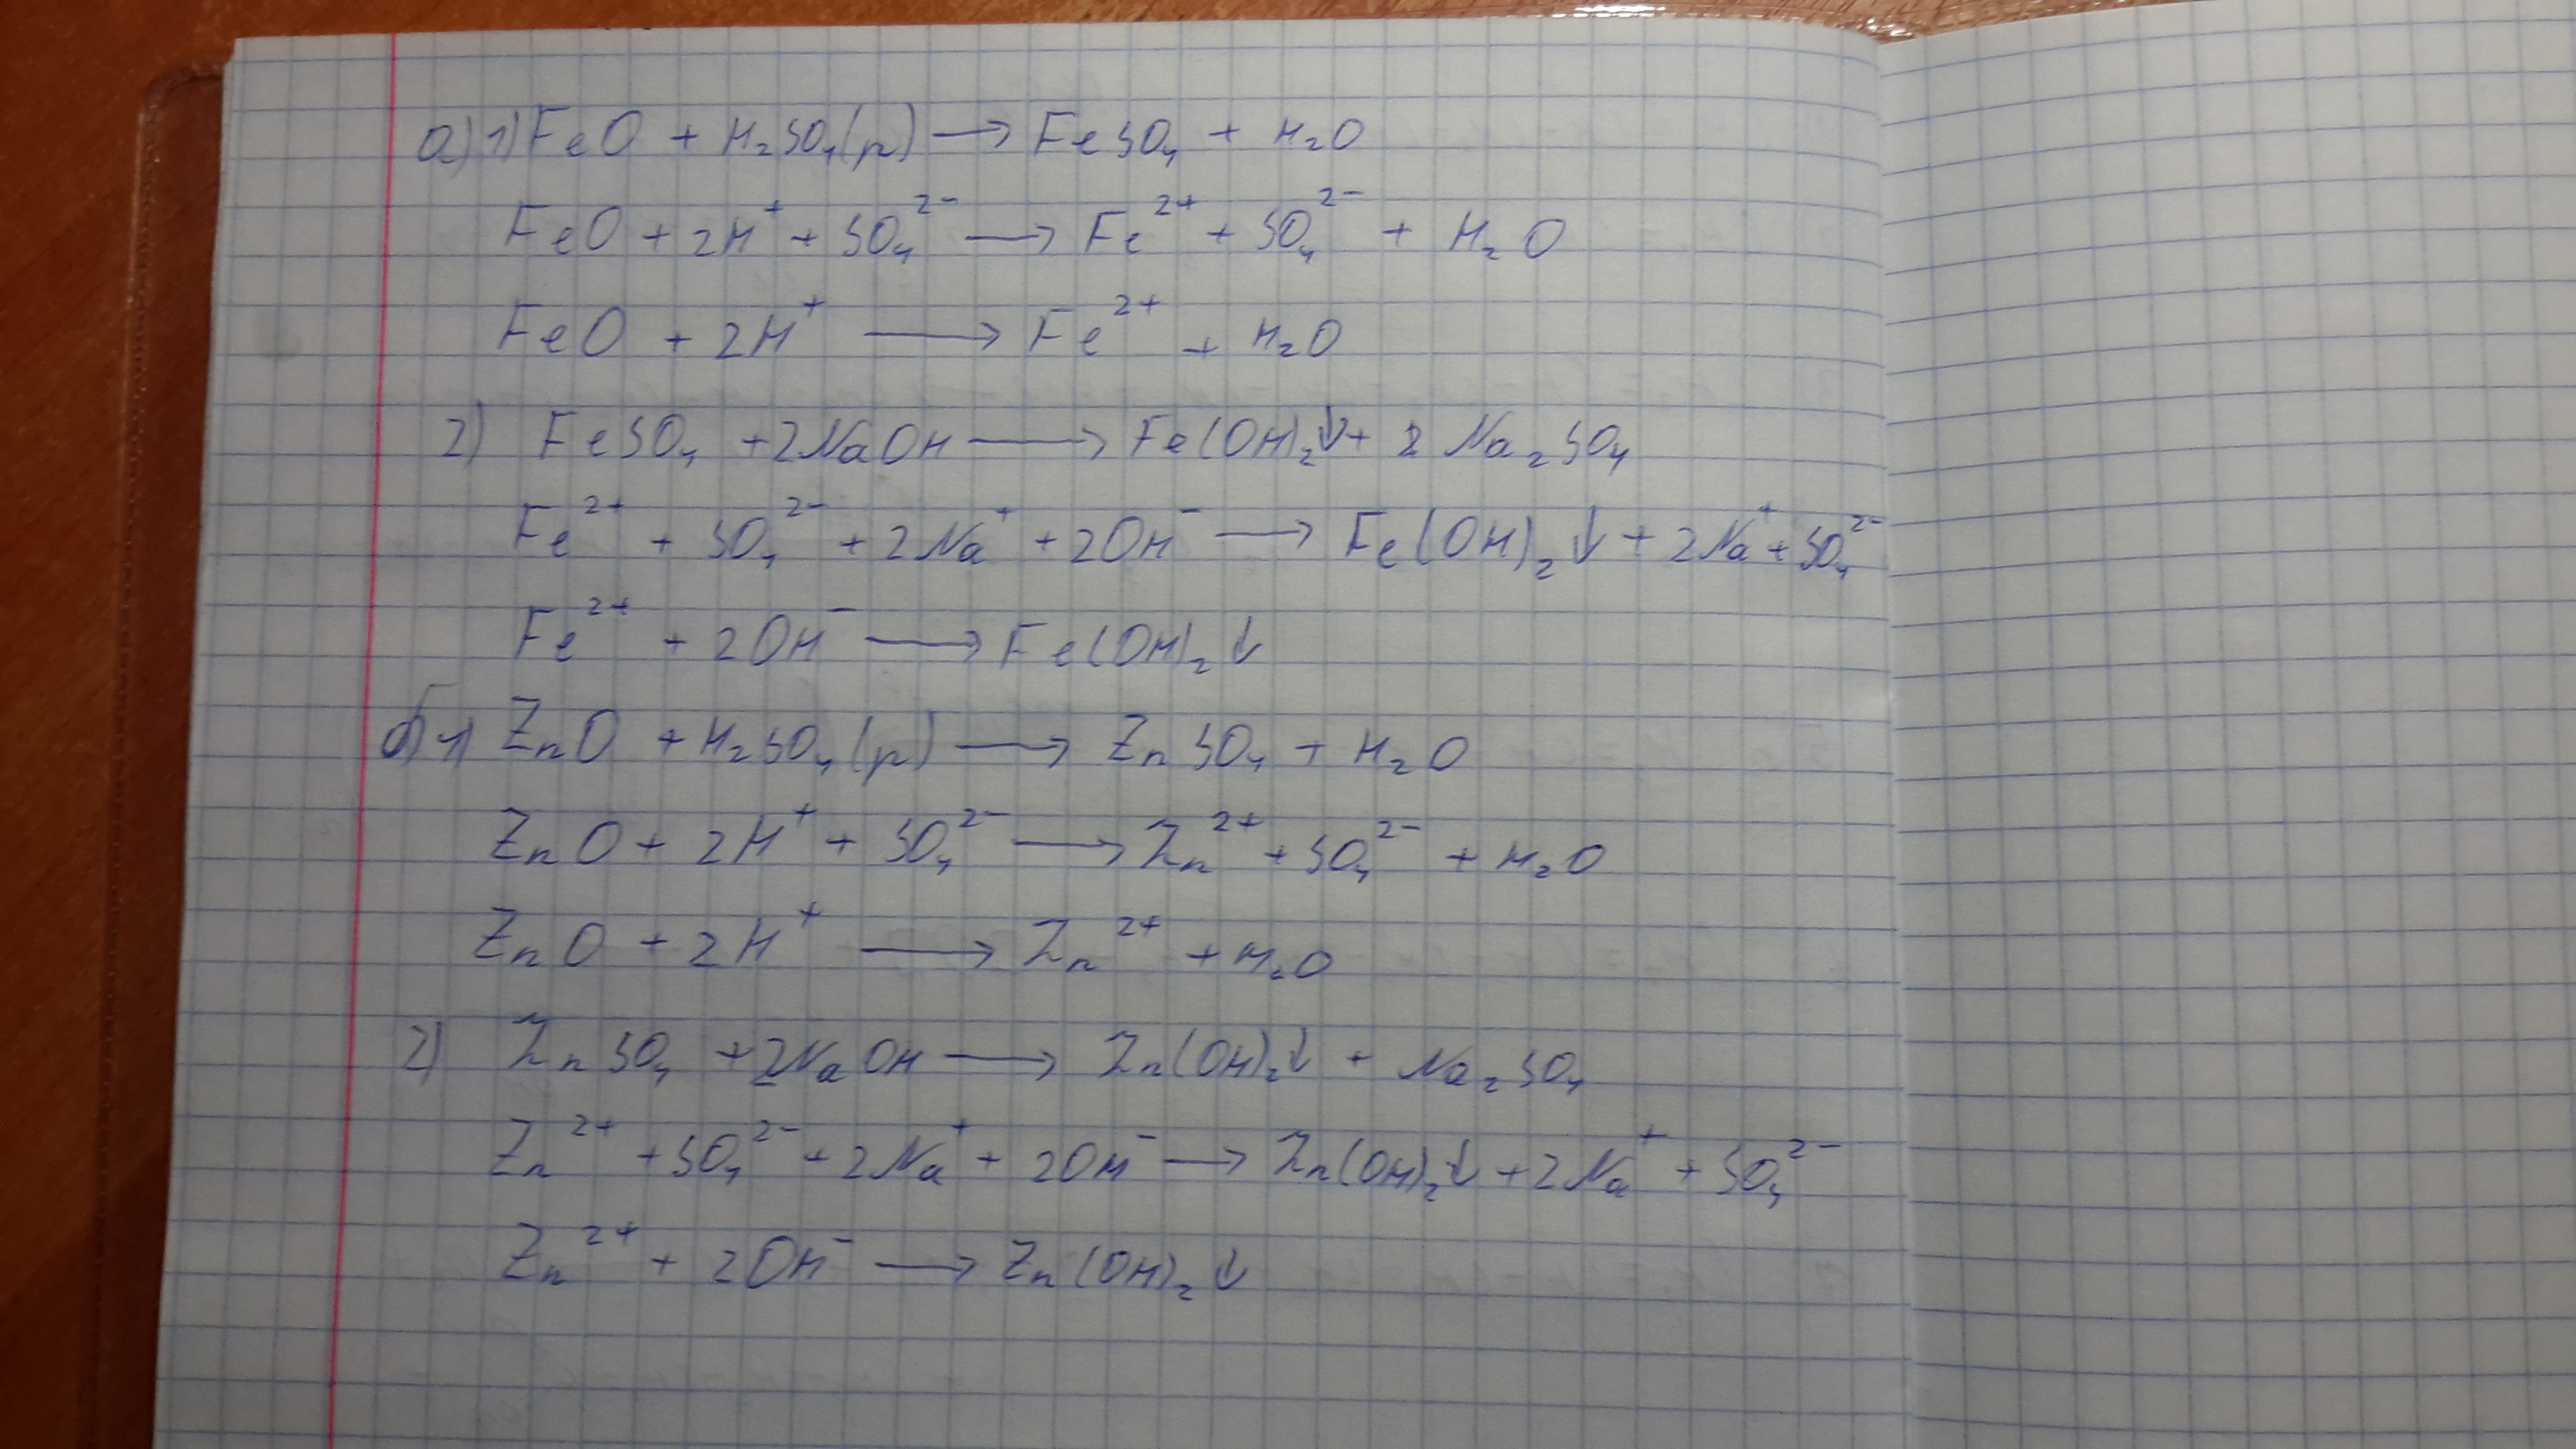 а) 1) FeO + H₂SO₄(р) → FeSO₄ + H₂O
FeO + 2H⁺ + SO₄²⁻ → Fe²⁺ + SO₄²⁻ + H₂O
FeO + 2H⁺ → Fe²⁺ + H₂O
2) FeSO₄ + 2NaOH → Fe(OH)₂↓ + 2 Na₂SO₄
Fe²⁺ + SO₄²⁻ + 2Na⁺ + 2OH⁻ → Fe(OH)₂↓ + 2Na⁺ + SO₄²⁻
Fe²⁺ + 2OH⁻ → Fe(OH)₂↓
б) 1) ZnO + H₂SO₄(р) → ZnSO₄ + H₂O
ZnO + 2H⁺ + SO₄²⁻ → Zn²⁺ + SO₄²⁻ + H₂O
ZnO + 2H⁺ → Zn²⁺ + H₂O
2) ZnSO₄ + 2NaOH → Zn(OH)₂↓ + Na₂SO₄
Zn²⁺ + SO₄²⁻ + 2Na⁺ + 2OH⁻ → Zn(OH)₂↓ + 2Na⁺ + SO₄²⁻
Zn²⁺ + 2OH⁻ → Zn(OH)₂↓